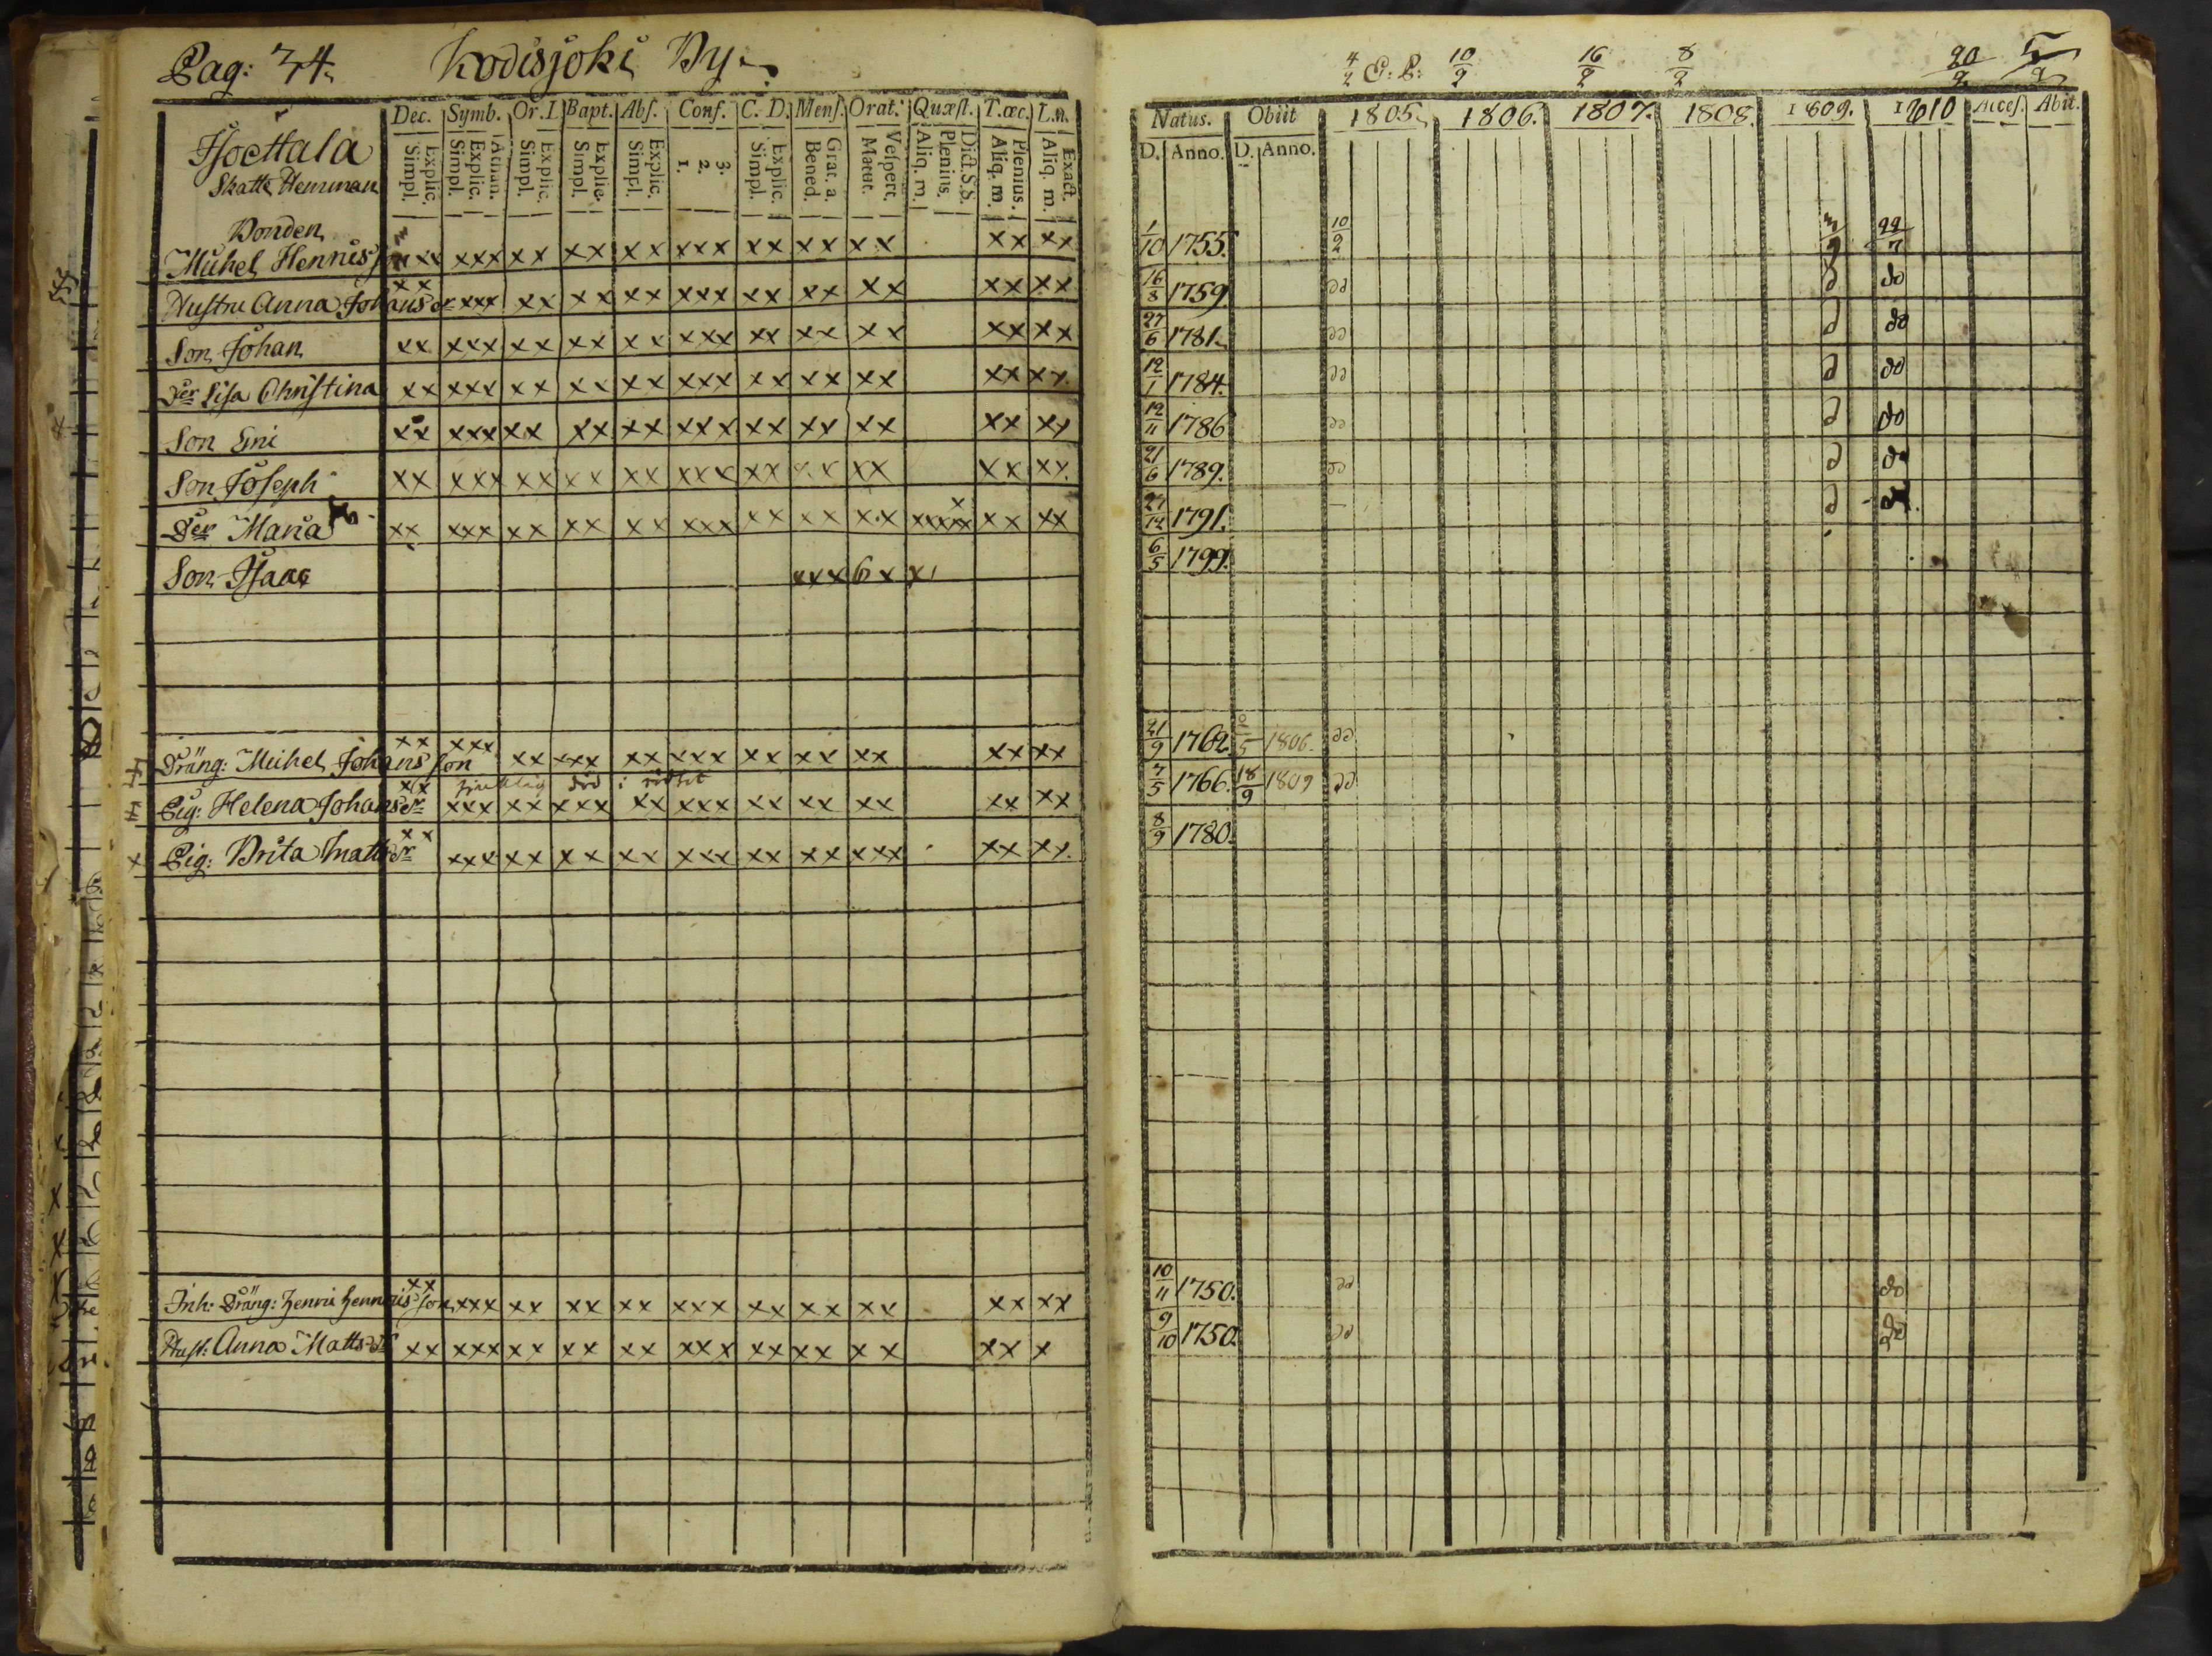 Pag: 34. Kodisjoki By.
Dec. Symb. Or. I. Bapt. Abſ. Conf. C. D. Menſ. Orat. Quæſt. T.œc. L.n.
Explic. Simpl. Athan. Explic. Simpl. Explic. Simpl. Explic. Simpl. Explic. Simpl. 3. 2. 1. Explic. Simpl. Grat. a. Bened. Veſpert. Matut. Dict. S.S. Plenius. Aliq. m. Plenius. Aliq. m. Exact. Aliq. m.
Skatte Hemman
Bonden
Michel Hennisson xx xxx xx xx xx xxx xx xx xx xx xx
Hustru Anna Johansdr xx xxx xx xx xx xxx xx xx xx xx xx
Son Johan xx xxx xx xx xx xxx xx xx xx xx xx
Der Lisa Christina xx xxx xx xx xx xxx xx xx xx xx xx
Son xx xxx xx xx xx xxx xx xx xx xx xx
Son Joseph xx xxx xx xx xx xxx xx xx xx xx xx
Der Maria xx xxx xx xx xx xxx xx xx xx xxxxx x xx xx
Son Isaac xxx 6 x x
Dräng: Michel Johansson xx xxx xx xxx xx xxx xx xx xx xx xx
död i
Pig: Helena Johansdr xx xxx xx xxx xx xxx xx xx xx xx xx
Pig: Brita Mattsdr xx xxx xx xx xx xxx xx xx xxx xx xx
Inh: Dräng: Henric Hennrisson xx xxx xx xx xx xxx xx xx xx xx xx
Hust. Anna Mattsdr xx xxx xx xx xx xxx xx xx xx xx x
4/2 10/2 16/2 8/2 20/2 5/2
Natus. Obiit 1805. 1806. 1807. 1808. 1809. 1810 Acceſ. Abit.
D. Anno. D. Anno.
1/10 1755. 10/2 3/9 22/7
16/8 1759 do d do
27/6 1781. do d do
12/1 1784. do d do
12/11 1786 do d do
21/6 1789. do d do
27/12 1791. d
6/5 1799.
21/9 1762 2/5 1806. do
7/5 1766. 18/9 1809 do
8/9 1780.
10/11 1750. do do
9/10 1750. do do